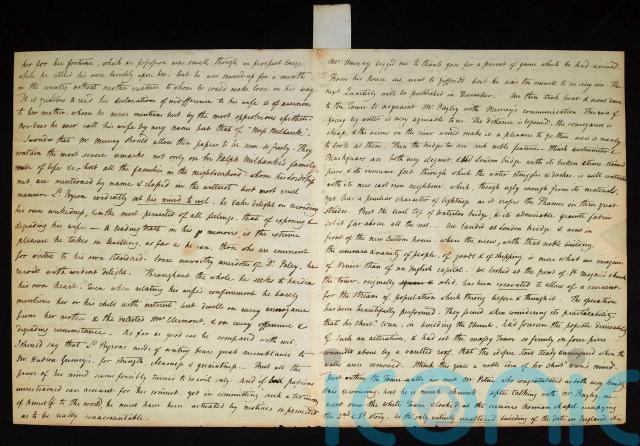 her for her fortune, which on possession was small though in prospect large,
while he settled his own lavishly upon her. but he was mewed up for a month
in the country without another creature to whom he could make love in her way.
It is grievous to read his declarations of indifference to his wife & of aversion
to her mother, whom he never mentions but by the most opprobrious epithets.
Nor does he ever call his wife by any name but that of "Miss Milbanke".
I wonder that Mr Murray should allow these papers to be seen so freely. They
contain the most severe remarks, not only on Sir Ralph Milbanke's family,
mode of life &c, but all the families in the neighbourhood whom his Lordship
met, are mentioned by name & classed in the wittiest but most cruel
manner. Ld Byron evidently in his mind to evil. he takes delight in recording
his own wickedness, & in the most perverted of all feelings, that of exposing &
degrading his wife — A leading trait in his memoirs is the extreme
pleasure he takes in levelling, as far as he can, those who are eminent
for virtue to his own standard. Some unworthy anecdote of Dr Paley, he
records with evident delight. Throughout the whole he seeks to harden
his own heart. Even when relating his wife's confinement he barely
mentions her or his child with interest but dwells on every annoyance
from her mother & the detested Mrs Clermont, & on every offensive &
degrading circumstance. As far as good can be compared with evil,
I should say that Ld Byron's mode of writing bears great resemblance to
for strength, clearness & quaintness. But all the
power of his mind seems forcibly turned to do evil only. And if bad passions
unrestrained can account for his conduct, yet in committing such a testimony
of himself to the world, he must have been actuated by motives so perverted
as to be really unaccountable.
Mr Murray begged me to thank you for a present of game which he had received.
From his house we went to Gifford's but he was too unwell to see any one. The
next Quarterly will be published in December. We then took boat & went down
to the Tower to acquaint Mr Bayley with Murray's communication. This way of
going by water is very agreeable to me. The distance is beguiled, the conveyance is
cheap, & the views on the river would make it a pleasure to go there were it merely
to look at them. Then the bridges are such noble features. I think Westminster &
Blackfriars are both very elegant, Old London bridge with its broken & time stained
piers & its narrow feet through which the water struggles & dashes, is well contrasted
with its new cast iron neighbour which, though ugly enough from its materials,
yet has a peculiar character of lightness as it crosses the Thames in three great
strides. But the level top of Waterloo bridge, & its admirable granite fabric
set it far above all the rest. We landed at London bridge & went in
front of the new Custom house. where the view, with that noble building,
the concourse & variety of people, of goods & of shipping is more what we imagine
of Venice than of an English capital. We looked at the pews of St Magnus's church
the tower, originally solid, has been excavated to allow of a current
for the stream of population which throng before & through it. The operation
has been beautifully performed. They found when considering its practicability
that Sir Christr Wren, in building the Church, had foreseen the possible desirability
of such an alteration, & had set the massy tower so firmly on four piers
connected above by a vaulted roof, that the edifice stood steady uninjured when the
walls were removed. I think this gives a noble idea of Sir Christr Wren's mind.
Just within the Tower-gates we met Mr Petrie who congratulated us both very kindly
After talking with Mr Bayley, we
went over the white tower & looked at the curious Norman chapel occupying
the 2nd & 3rd story. As the only entirely unaltered building of the date in England it is